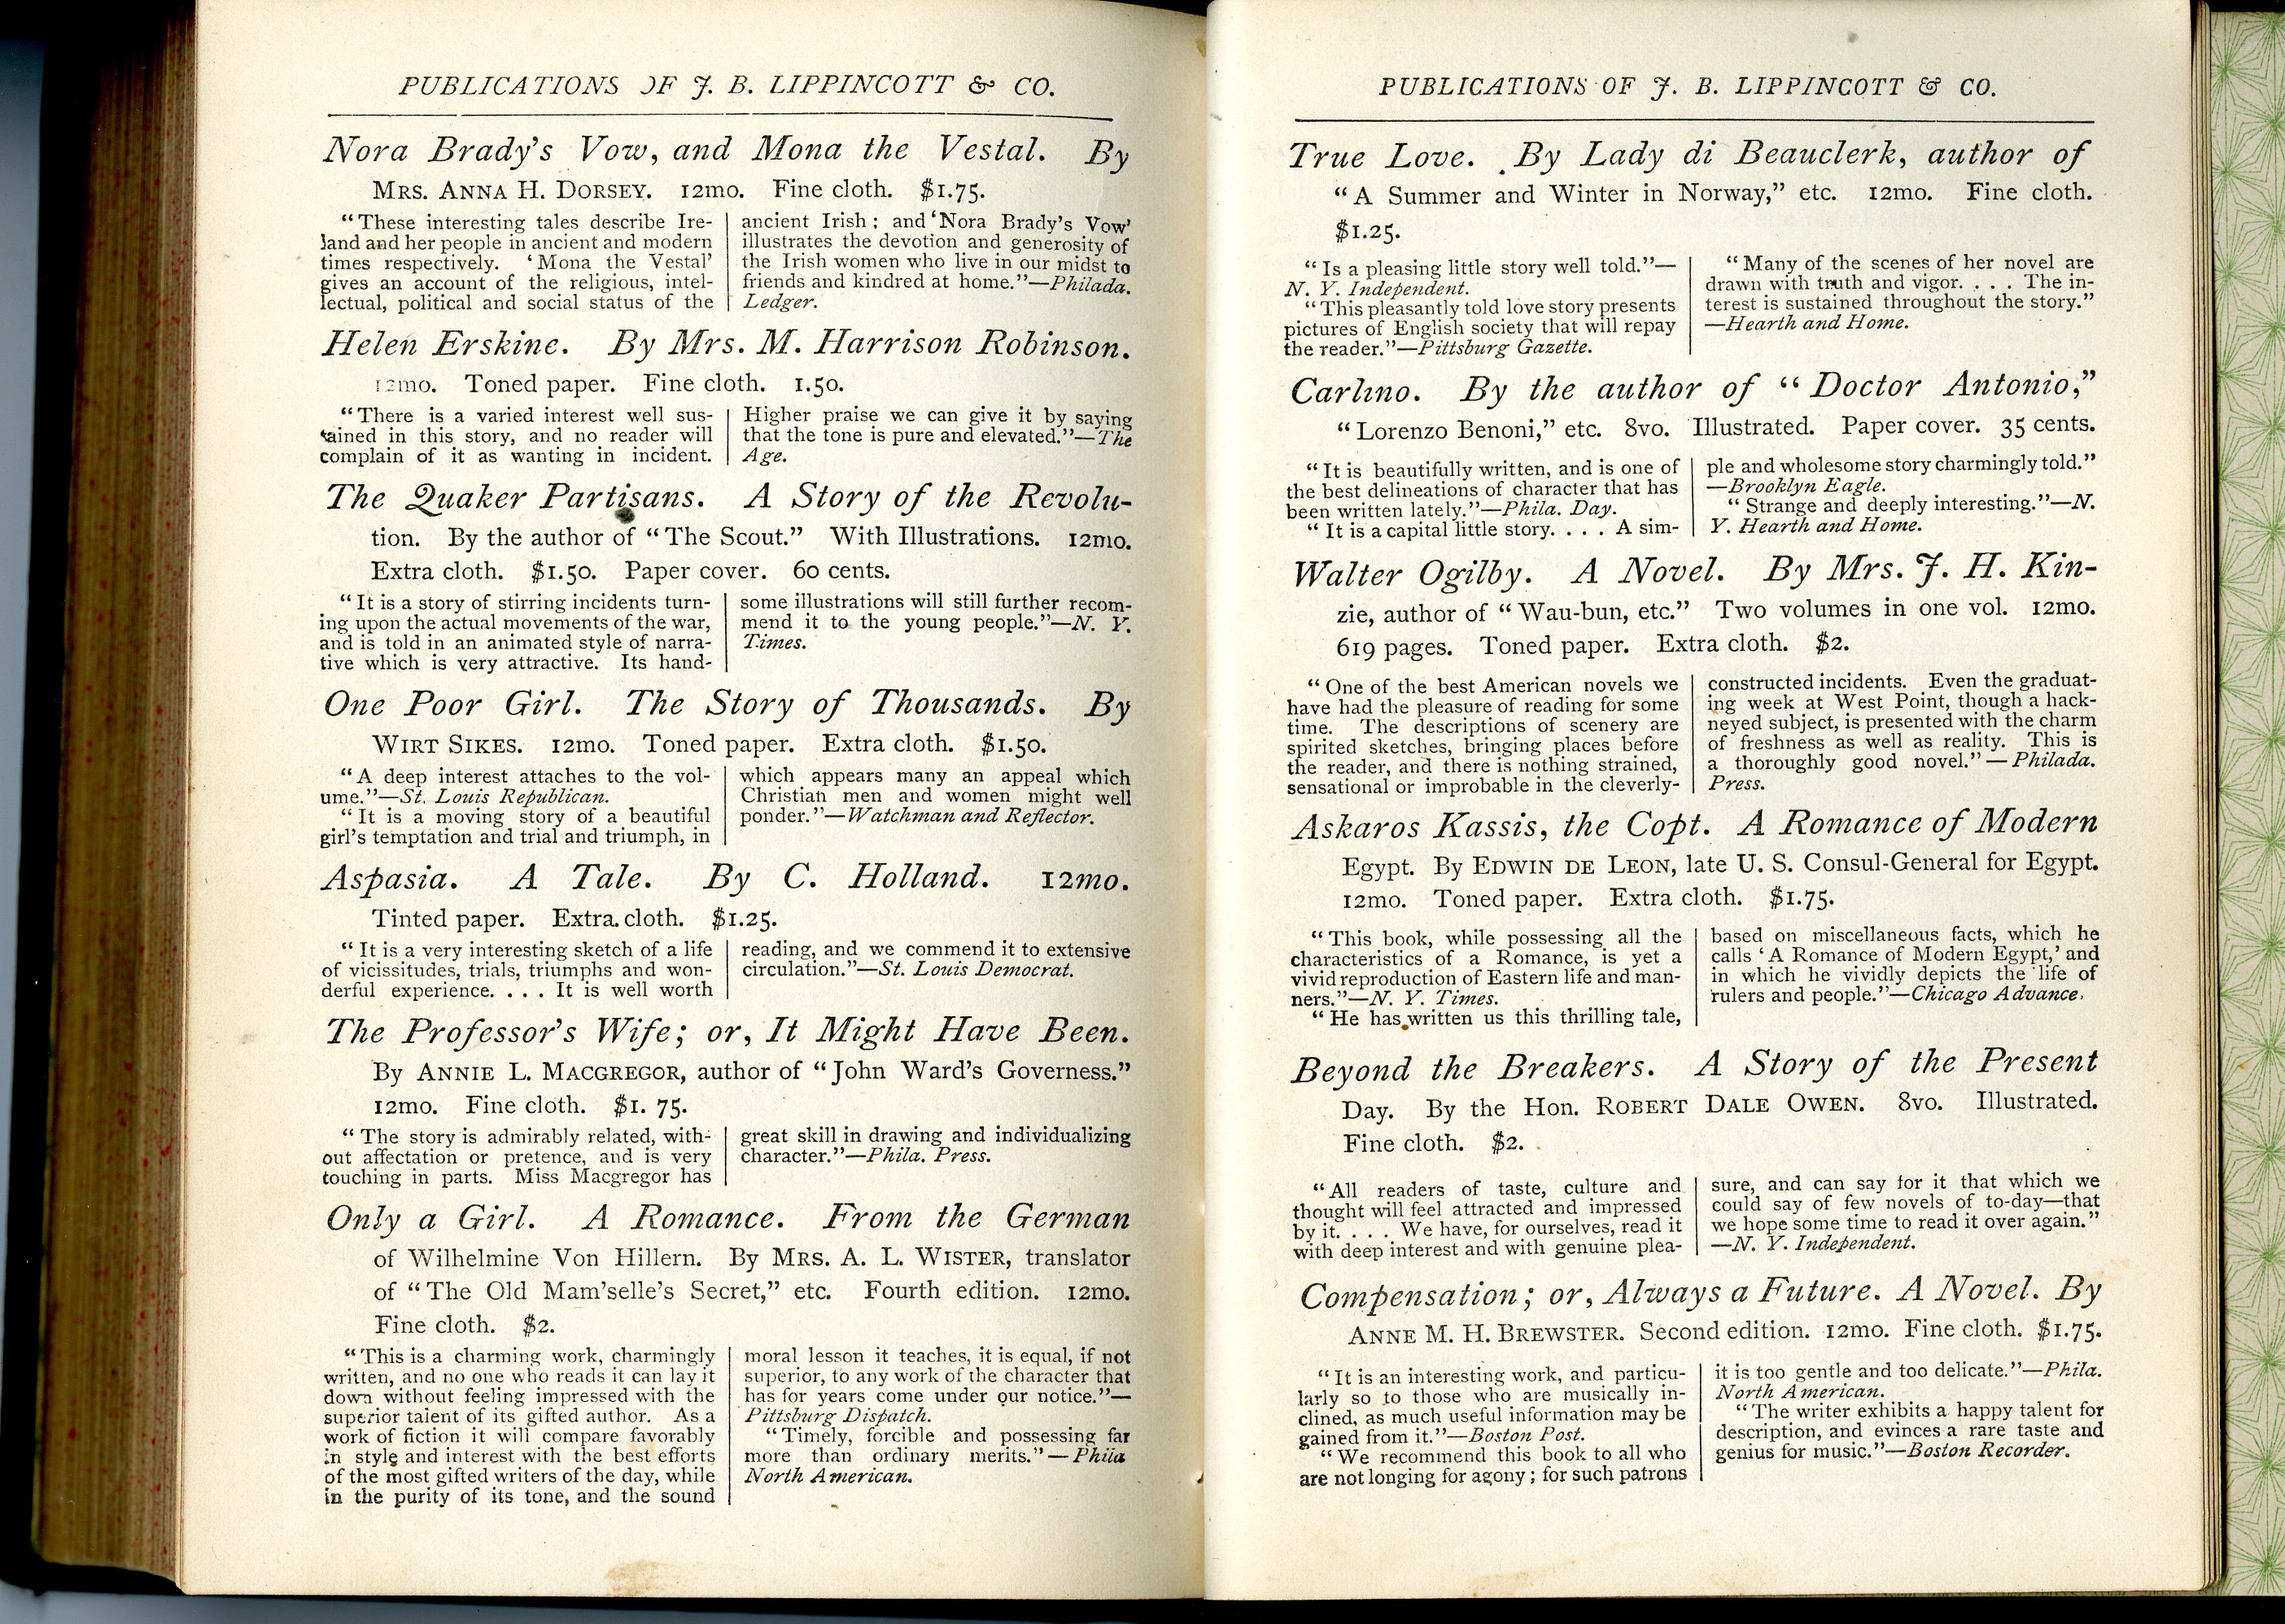 PUBLICATIONS OF J. B. LIPPINCOTT & CO.
Nora Brady's Vow, and Mona the Vestal. By
MRS. ANNA H. DORSEY. 12mo. Fine cloth. $1.75.
“These interesting tales describe Ire-
land and her people in ancient and modern
times respectively. ‘Mona the Vestal’
gives an account of the religious, intel-
lectual, political and social status of the
ancient Irish; and ‘Nora Brady's Vow’
illustrates the devotion and generosity of
the Irish women who live in our midst to
friends and kindred at home.”—Philada.
Ledger.
Helen Erskine. By Mrs. M. Harrison Robinson.
12mo. Toned paper. Fine cloth. 1.50.
“There is a varied interest well sus-
tained in this story, and no reader will
complain of it as wanting in incident.
Higher praise we can give it by saying
that the tone is pure and elevated.”—The
Age.
The Quaker Partisans. A Story of the Revolu-
tion. By the author of “The Scout.” With Illustrations. 12mo.
Extra cloth. $1.50. Paper cover. 60 cents.
“It is a story of stirring incidents turn-
ing upon the actual movements of the war,
and is told in an animated style of narra-
tive which is very attractive. Its hand-
some illustrations will still further recom-
mend it to the young people.”—N. Y.
Times.
One Poor Girl. The Story of Thousands. By
WIRT SIKES. 12mo. Toned paper. Extra cloth. $1.50.
“A deep interest attaches to the vol-
ume.”—St. Louis Republican.
“It is a moving story of a beautiful
girl's temptation and trial and triumph, in
which appears many an appeal which
Christian men and women might well
ponder.”—Watchman and Reflector.
Aspasia. A Tale. By C. Holland. 12mo.
Tinted paper. Extra cloth. $1.25.
“It is a very interesting sketch of a life
of vicissitudes, trials, triumphs and won-
derful experience. . . . It is well worth
reading, and we commend it to extensive
circulation.”—St. Louis Democrat.
The Professor's Wife; or, It Might Have Been.
By ANNIE L. MACGREGOR, author of “John Ward's Governess.”
12mo. Fine cloth. $1. 75.
“The story is admirably related, with-
out affectation or pretence, and is very
touching in parts. Miss Macgregor has
great skill in drawing and individualizing
character.”—Phila. Press.
Only a Girl. A Romance. From the German
of Wilhelmine Von Hillern. By MRS. A. L. WISTER, translator
of “The Old Mam'selle's Secret,” etc. Fourth edition. 12mo.
Fine cloth. $2.
“This is a charming work, charmingly
written, and no one who reads it can lay it
down without feeling impressed with the
superior talent of its gifted author. As a
work of fiction it will compare favorably
in style and interest with the best efforts
of the most gifted writers of the day, while
in the purity of its tone, and the sound
moral lesson it teaches, it is equal, if not
superior, to any work of the character that
has for years come under our notice.”—
Pittsburg Dispatch.
“Timely, forcible and possessing far
more than ordinary merits.”—Phila
North American.
PUBLICATIONS OF J. B. LIPPINCOTT & CO.
True Love. By Lady di Beauclerk, author of
“A Summer and Winter in Norway,” etc. 12mo. Fine cloth.
$1.25.
“Is a pleasing little story well told.”—
N. Y. Independent.
“This pleasantly told love story presents
pictures of English society that will repay
the reader.”—Pittsburg Gazette.
“Many of the scenes of her novel are
drawn with truth and vigor. . . . The in-
terest is sustained throughout the story.”
—Hearth and Home.
Carlino. By the author of “Doctor Antonio,”
“Lorenzo Benoni,” etc. 8vo. Illustrated. Paper cover. 35 cents.
“It is beautifully written, and is one of
the best delineations of character that has
been written lately.”—Phila. Day.
“It is a capital little story. . . . A sim-
ple and wholesome story charmingly told.”
—Brooklyn Eagle.
“Strange and deeply interesting.”—N.
Y. Hearth and Home.
Walter Ogilby. A Novel. By Mrs. J. H. Kin-
zie, author of “Wau-bun, etc.” Two volumes in one vol. 12mo.
619 pages. Toned paper. Extra cloth. $2.
“One of the best American novels we
have had the pleasure of reading for some
time. The descriptions of scenery are
spirited sketches, bringing places before
the reader, and there is nothing strained,
sensational or improbable in the cleverly-
constructed incidents. Even the graduat-
ing week at West Point, though a hack-
neyed subject, is presented with the charm
of freshness as well as reality. This is
a thoroughly good novel.”—Philada.
Press.
Askaros Kassis, the Copt. A Romance of Modern
Egypt. By EDWIN DE LEON, late U. S. Consul-General for Egypt.
12mo. Toned paper. Extra cloth. $1.75.
“This book, while possessing all the
characteristics of a Romance, is yet a
vivid reproduction of Eastern life and man-
ners.”—N. Y. Times.
“He has written us this thrilling tale,
based on miscellaneous facts, which he
calls ‘A Romance of Modern Egypt,’ and
in which he vividly depicts the life of
rulers and people.”—Chicago Advance.
Beyond the Breakers. A Story of the Present
Day. By the Hon. ROBERT DALE OWEN. 8vo. Illustrated.
Fine cloth. $2.
“All readers of taste, culture and
thought will feel attracted and impressed
by it. . . . We have, for ourselves, read it
with deep interest and with genuine plea-
sure, and can say for it that which we
could say of few novels of to-day—that
we hope some time to read it over again.”
—N. Y. Independent.
Compensation; or, Always a Future. A Novel. By
ANNE M. H. BREWSTER. Second edition. 12mo. Fine cloth. $1.75.
“It is an interesting work, and particu-
larly so to those who are musically in-
clined, as much useful information may be
gained from it.”—Boston Post.
“We recommend this book to all who
are not longing for agony; for such patrons
it is too gentle and too delicate.”—Phila.
North American.
“The writer exhibits a happy talent for
description, and evinces a rare taste and
genius for music.”—Boston Recorder.